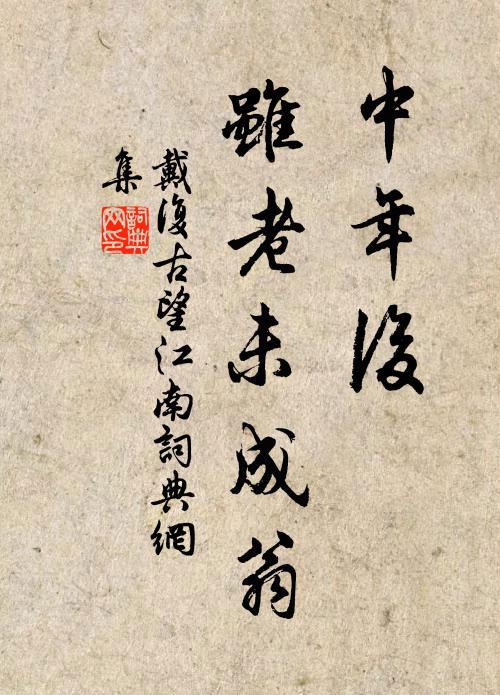 中年後
雖老未成翁
戴復古望江南詞典網
集
詞典
网印